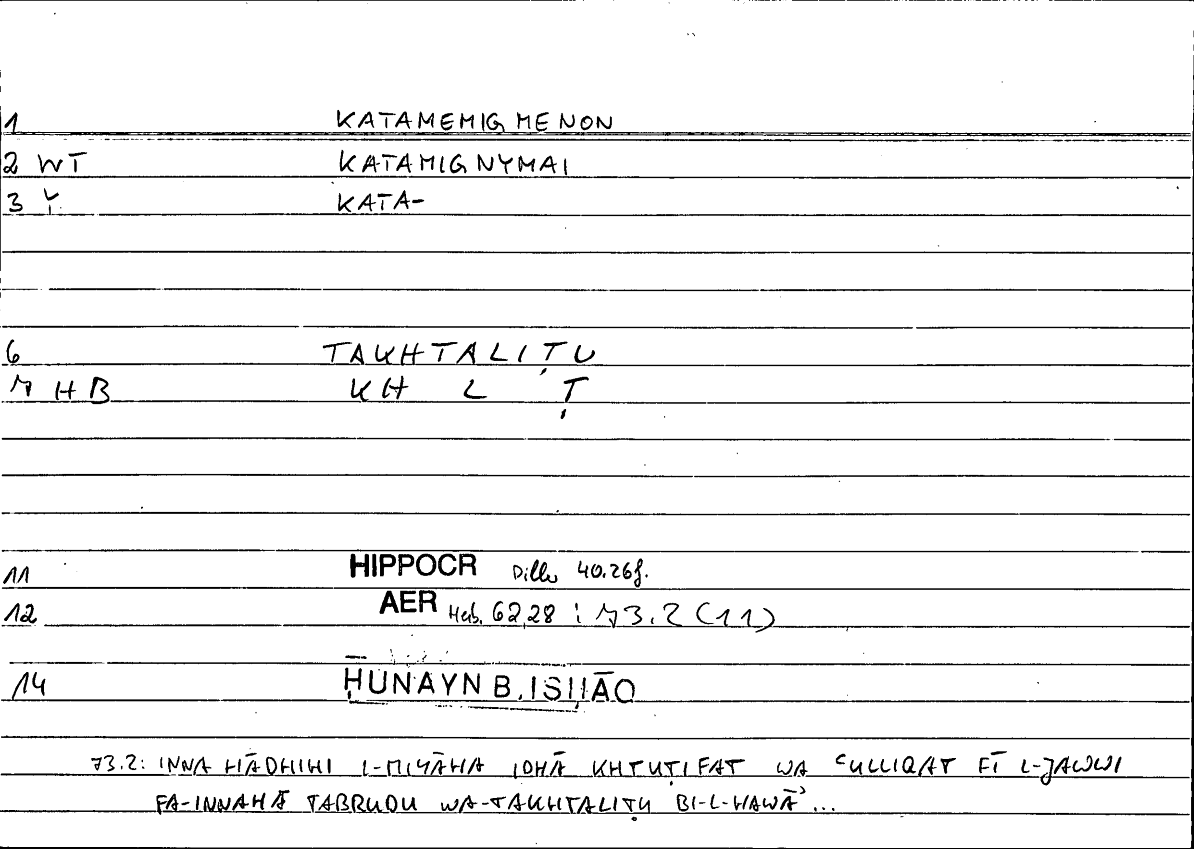 1 KATAMEMIGMENON
2 WT KATAMIGNYMAI
3 Y KATA-
6 TAKHTALIṬU
7 HB KH L Ṭ
11 HIPPOCR Diller 40.26f.
12 AER 62,28 ; 73.2 (11)
14 ḤUNAYN B. ISḤĀQ
73.2: INNA HĀDHIHI L-MIYĀHA IDHĀ KHTUṬIFAT WA ʿULLIQAT FĪ L-JAWWI
FA-INNAHĀ TABRUDU WA-TAKHTALIṬU BI-L-HAWĀʾ...